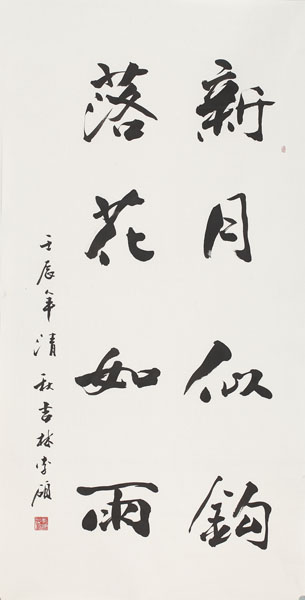 新月似鈎
落花如雨
壬辰年清秋吉林李碩